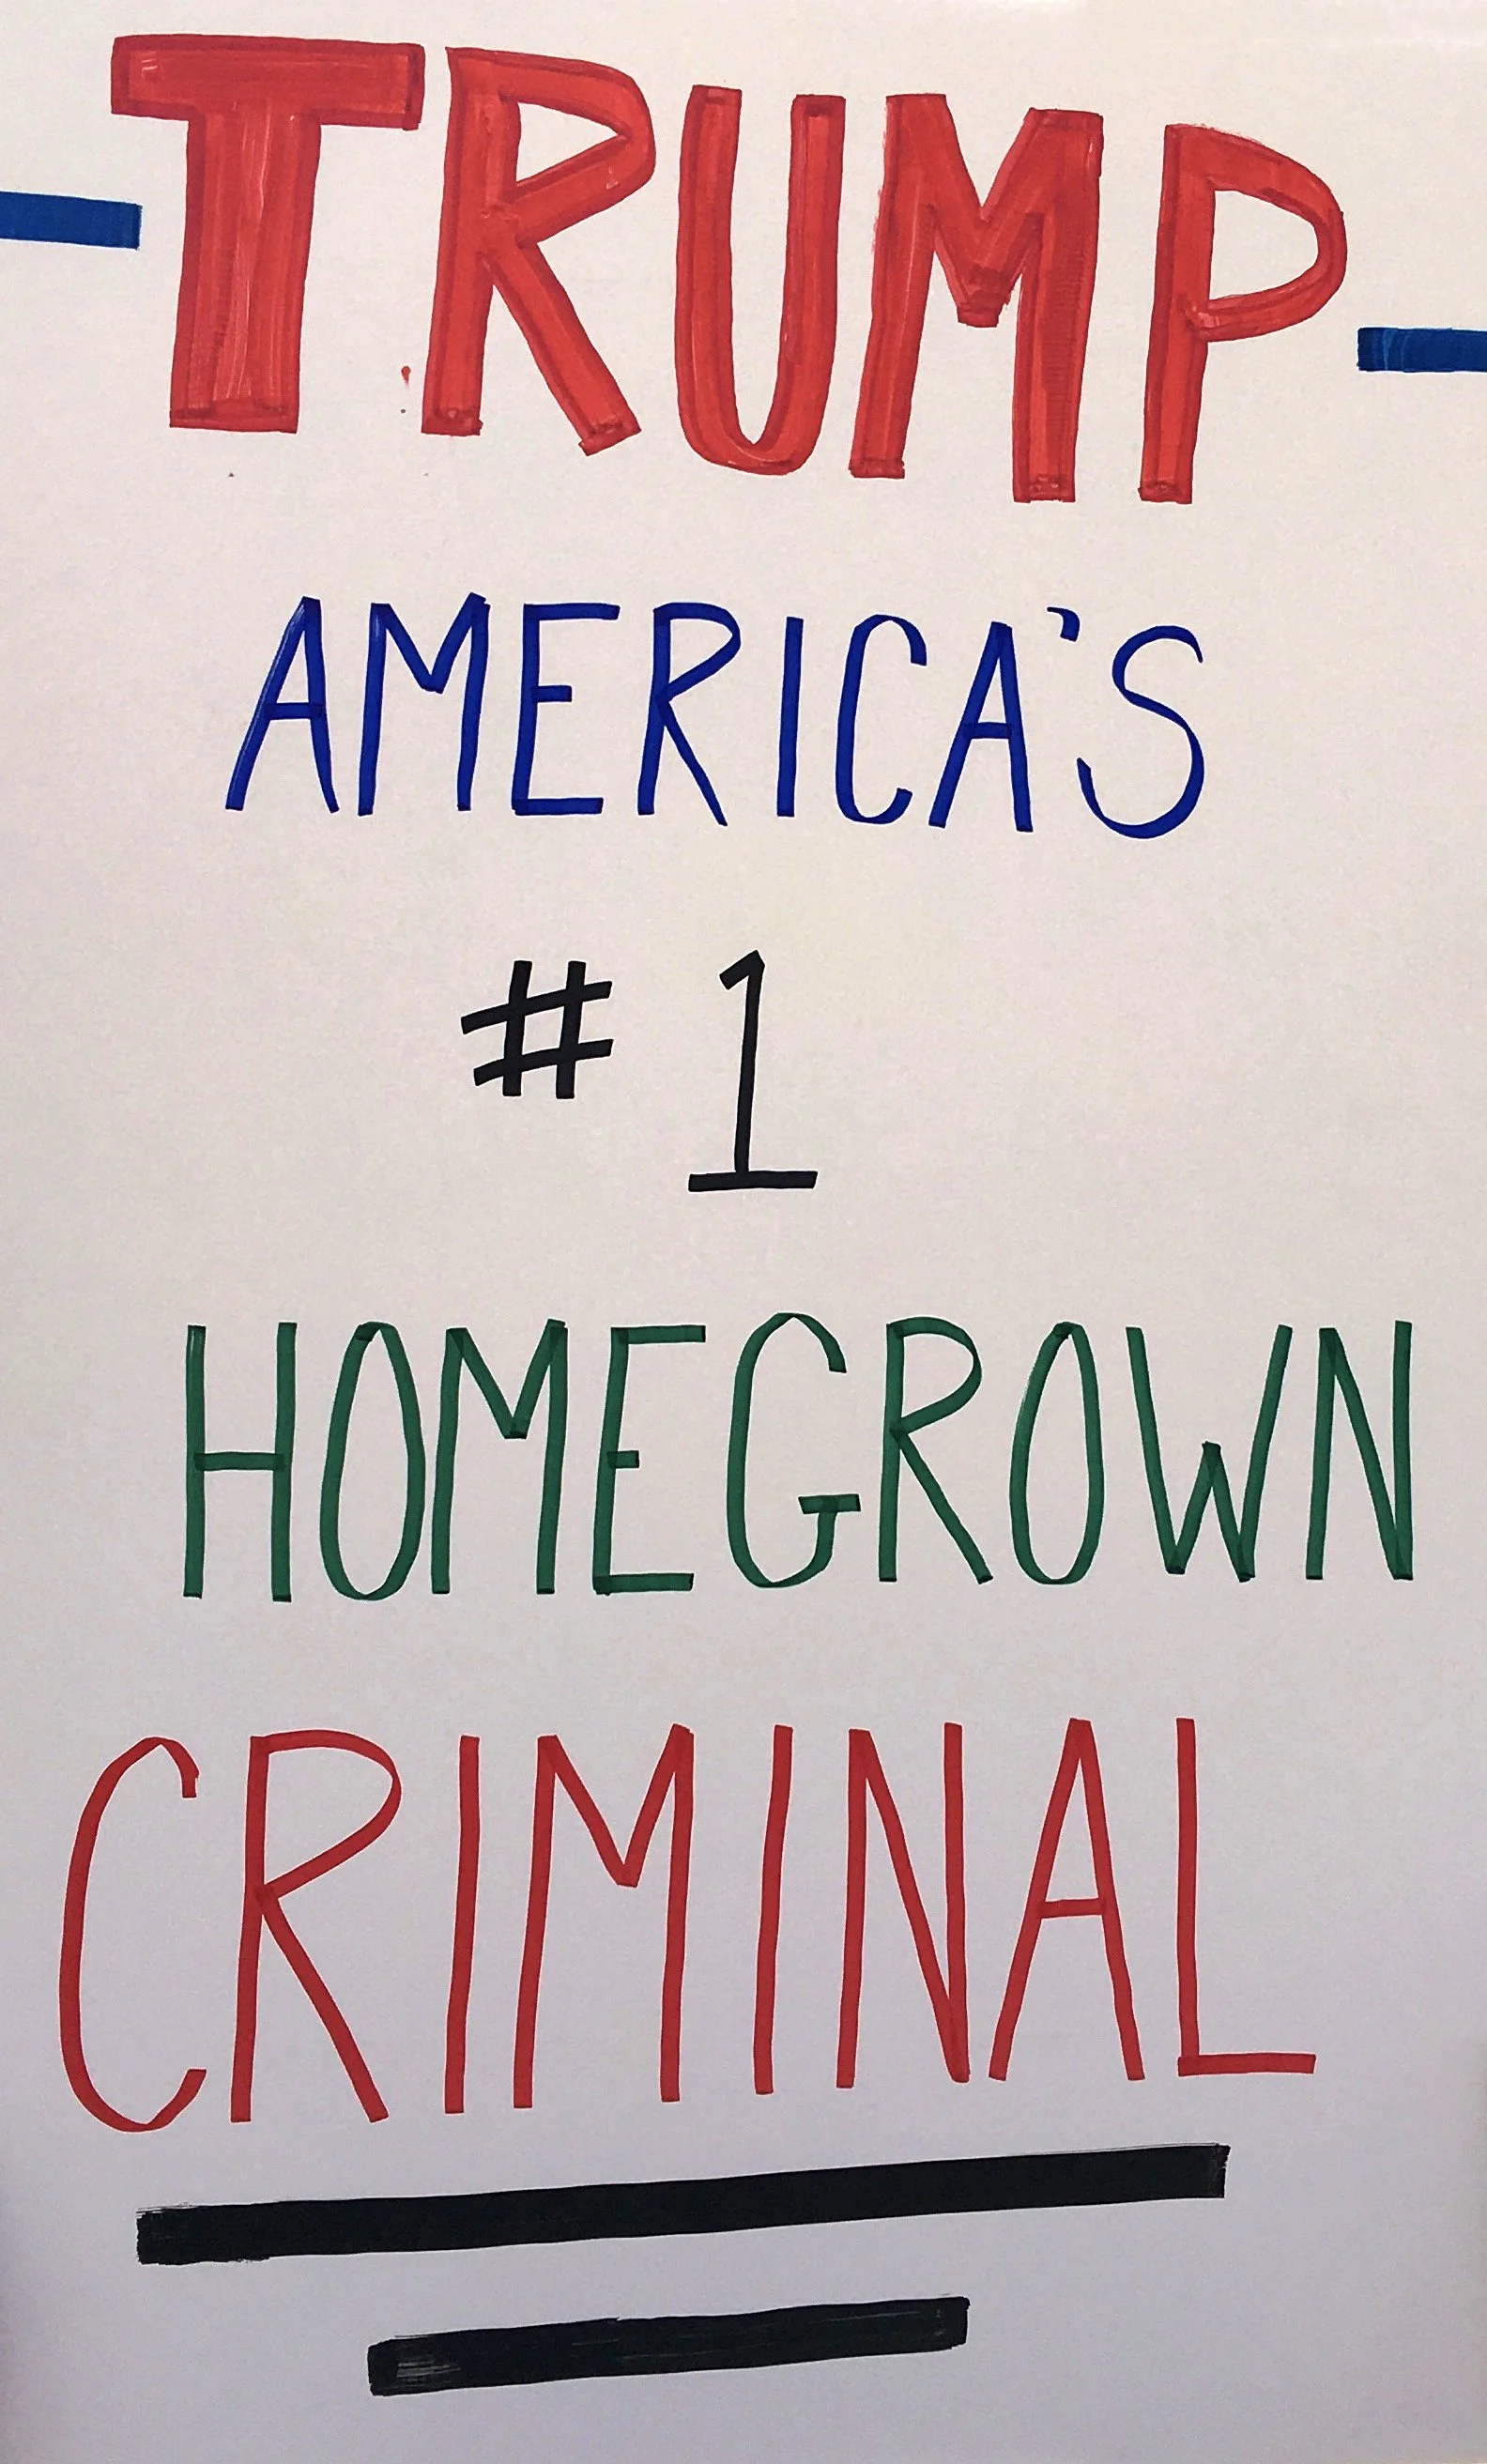 TRUMP
AMERICA'S
# 1
HOMEGROWN
CRIMINAL